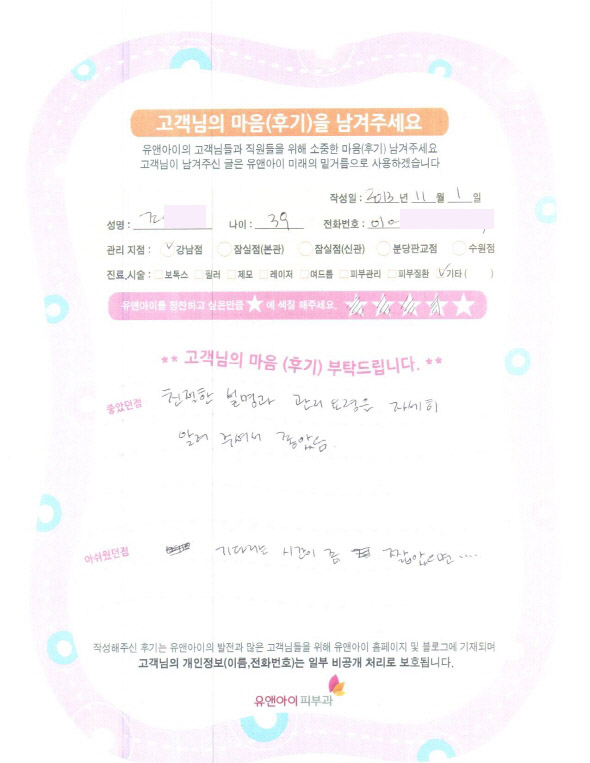 고객님의 마음(후기)을 남겨주세요
유앤아이의 고객님들과 직원들을 위해 소중한 마음(후기) 남겨주세요
고객님이 남겨주신 글은 유앤아이 미래의 밑거름으로 사용하겠습니다
작성일 : 2013 년 11 월 1 일
성명 : 김 나이 : 39 전화번호 : 010
관리 지점 : 강남점 잠실점(본관) 잠실점(신관) 분당판교점 수원점
진료,시술 : 보톡스 필러 제모 레이저 여드름 피부관리 피부질환 기타 ( )
유앤아이를 칭찬하고 싶은만큼 ★ 에 색칠 해주세요. ★★★★★
** 고객님의 마음 (후기) 부탁드립니다. **
좋았던점 친절한 설명과 관리 요령을 자세히
알려 주셔서 좋았음
아쉬웠던점 기다리는 시간이 좀 짧았으면....
작성해주신 후기는 유앤아이의 발전과 많은 고객님들을 위해 유앤아이 홈페이지 및 블로그에 기재되며
고객님의 개인정보(이름,전화번호)는 일부 비공개 처리로 보호됩니다.
유앤아이피부과